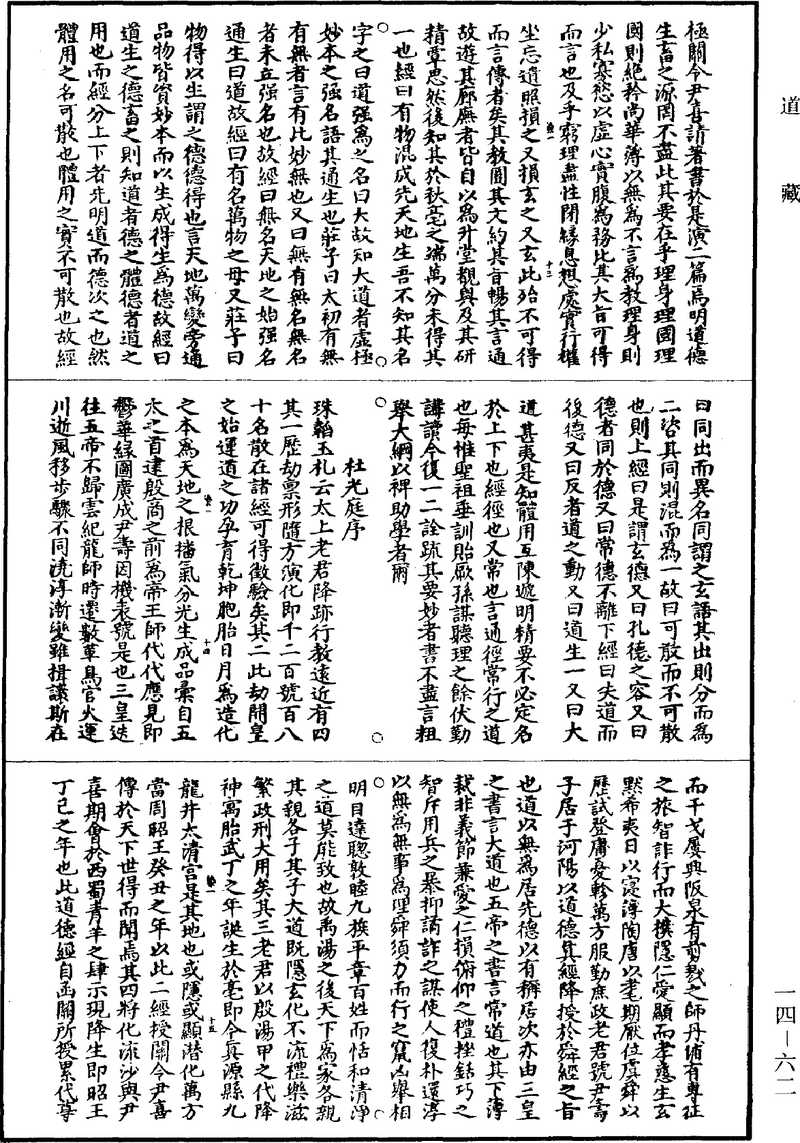 道藏
一四—六二
極關令尹喜請著書於是演二篇焉明道德
生畜之源罔不盡此其要在乎理身理國理
國則絕矜尚華薄以無爲不言爲教理身則
少私寡慾以虛心實腹爲務比其大旨可得
而言也及乎窮理盡性閉緣息想處實行權
坐忘遺照損之又損玄之又玄此殆不可得
而言傳者矣其教圓其文約其旨暢其言通
故遊其廊廡者皆自以爲升堂覩奧及其研
精覃思然後知其於秋毫之端萬分未得其
一也經曰有物混成先天地生吾不知其名
字之曰道強爲之名曰大故知大道者虛極
妙本之強名語其通生也莊子曰太初有無
有無者言有比妙無也又曰無有無名無名
者未立強名也故經曰無名天地之始強名
通生曰道故經曰有名萬物之母又莊子曰
物得以生謂之德德得也言天地萬變旁通
品物皆資妙本而以生成得生爲德故經曰
道生之德畜之則知道者德之體德者道之
用也而經分上下者先明道而德次之也然
體用之名可散也體用之實不可散也故經
曰同出而異名同謂之玄語其出則分而爲
二咨其同則混而爲一故曰可散而不可散
也則上經曰是謂玄德又曰孔德之容又曰
德者同於德又曰常德不離下經曰夫道而
後德又曰反者道之動又曰道生一又曰大
道甚夷是知體用互陳遞明精要不必定名
於上下也經徑也又常也言通徑常行之道
也每惟聖祖垂訓貽厥孫謀聽理之餘伏勤
講讀今復一二詮疏其要妙者書不盡言粗
舉大綱以裨助學者爾
杜光庭序
珠韜玉札云太上老君降跡行教遠近有四
其一歷劫稟形隨方演化即千二百號百八
十名散在諸經可得徵驗矣其二此劫開皇
之始運道之功孕育乾坤胞胎日月爲造化
之本爲天地之根播氣分光生成品彙自五
太之首逮殷商之前爲帝王師代代應見即
鬱華緣圖廣成尹壽因機表號是也三皇迭
往五帝不歸雲紀龍師時還數革鳥官火運
川逝風移步驟不同澆淳漸變雖揖讓斯在
而干戈屢興阪泉有剪戮之師丹浦有專征
之旅智詐行而大樸隱仁愛顯而孝慈生玄
默希夷日以寖薄陶唐以耄期厭位虞舜以
歷試登庸憂軫萬方服勤庶政老君號尹壽
子居于河陽以道德真經降授於舜經之旨
也道以無爲居先德以有稱居次亦由三皇
之書言大道也五帝之書言常道也其下薄
裁非義節兼愛之仁損俯仰之禮挫銛巧之
智斥用兵之暴抑譎詐之謀使人復朴還淳
以無爲無事爲理舜須力而行之竄凶舉相
明目達聰敦睦九族平章百姓而恬和清淨
之道莫能致也故禹湯之後天下爲家各親
其親各子其子大道既隱玄化不流禮樂滋
繁政刑大用矣其三老君以殷湯甲之代降
神寓胎武丁之年誕生於亳即今真源縣九
龍井太清宮是其地也或隱或顯潛化萬方
當周昭王癸丑之年以此二經授關令尹喜
傳於天下世得而聞焉其四將化流沙與尹
喜期會於西蜀青羊之肆示現降生即昭王
丁巳之年也此道德經自函關所授累代尊